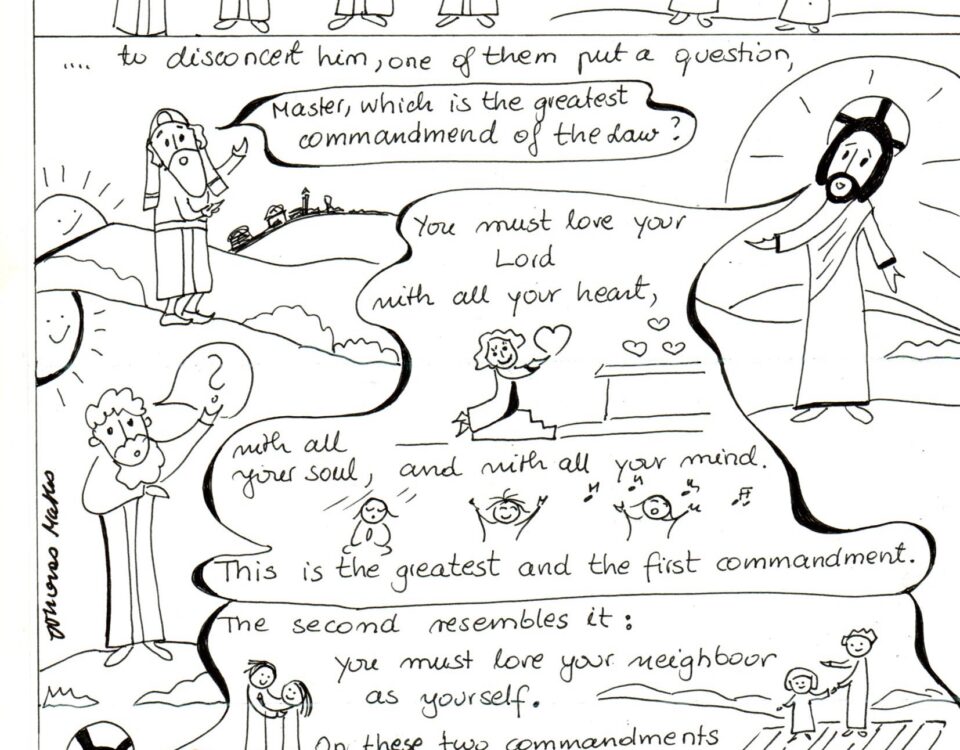 .... to disconcert him, one of them put a question,
Master, which is the greatest
commandmend of the Law ?
You must love your
Lord
with all your heart,
?
with all
your soul, and with all your mind.
This is the greatest and the first commandment.
The second resembles it :
you must love your neighbour
as yourself.
On these two commandments